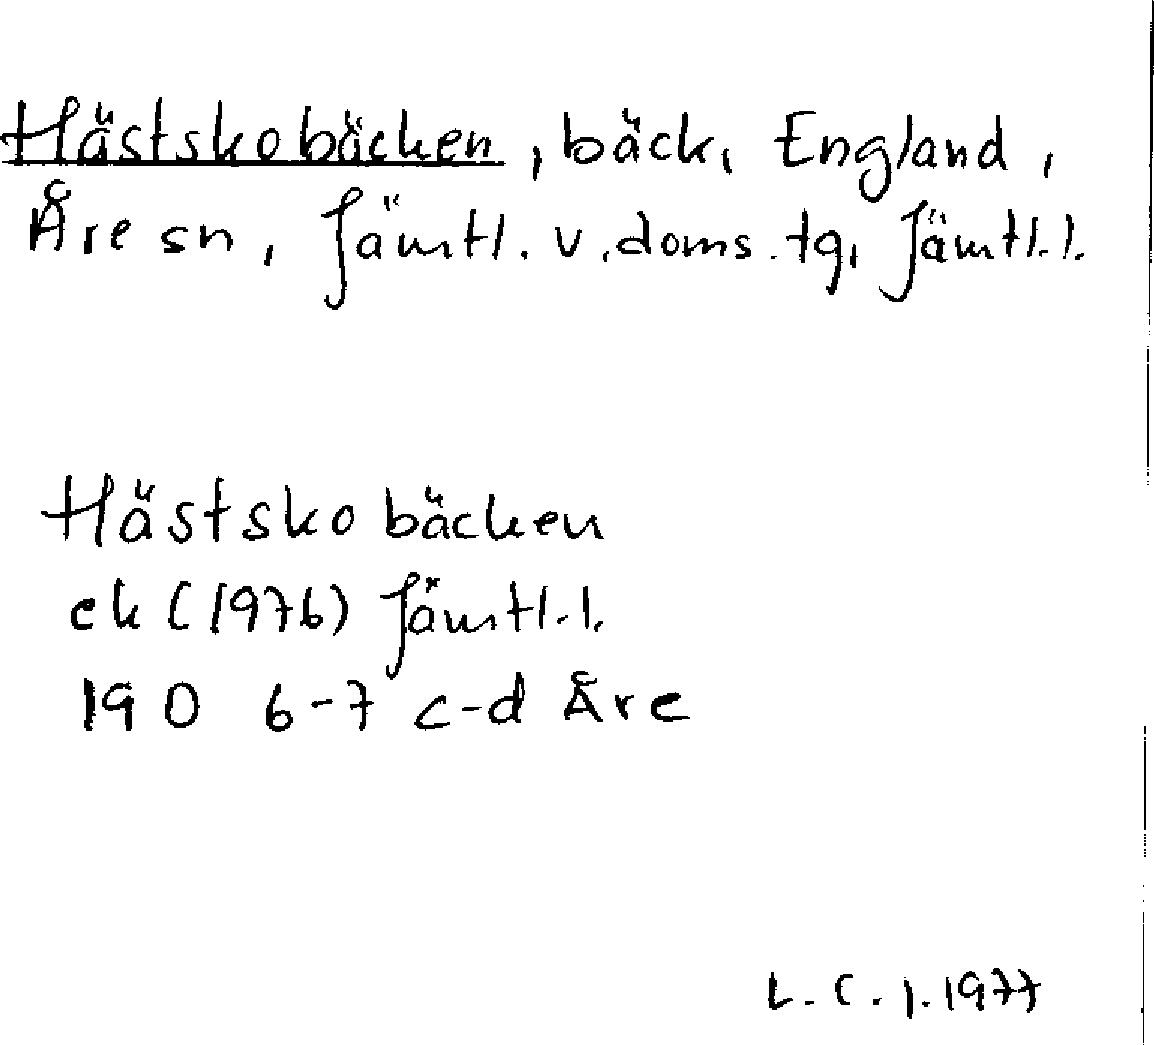 Hästskobäcken, bäck, England,
Åre sn, Jämtl. v. doms. tg, Jämtl. l.
Hästskobäcken
ek (1976) Jämtl. l.
19 D 6-7 c-d Åre
L. C. J. 1977